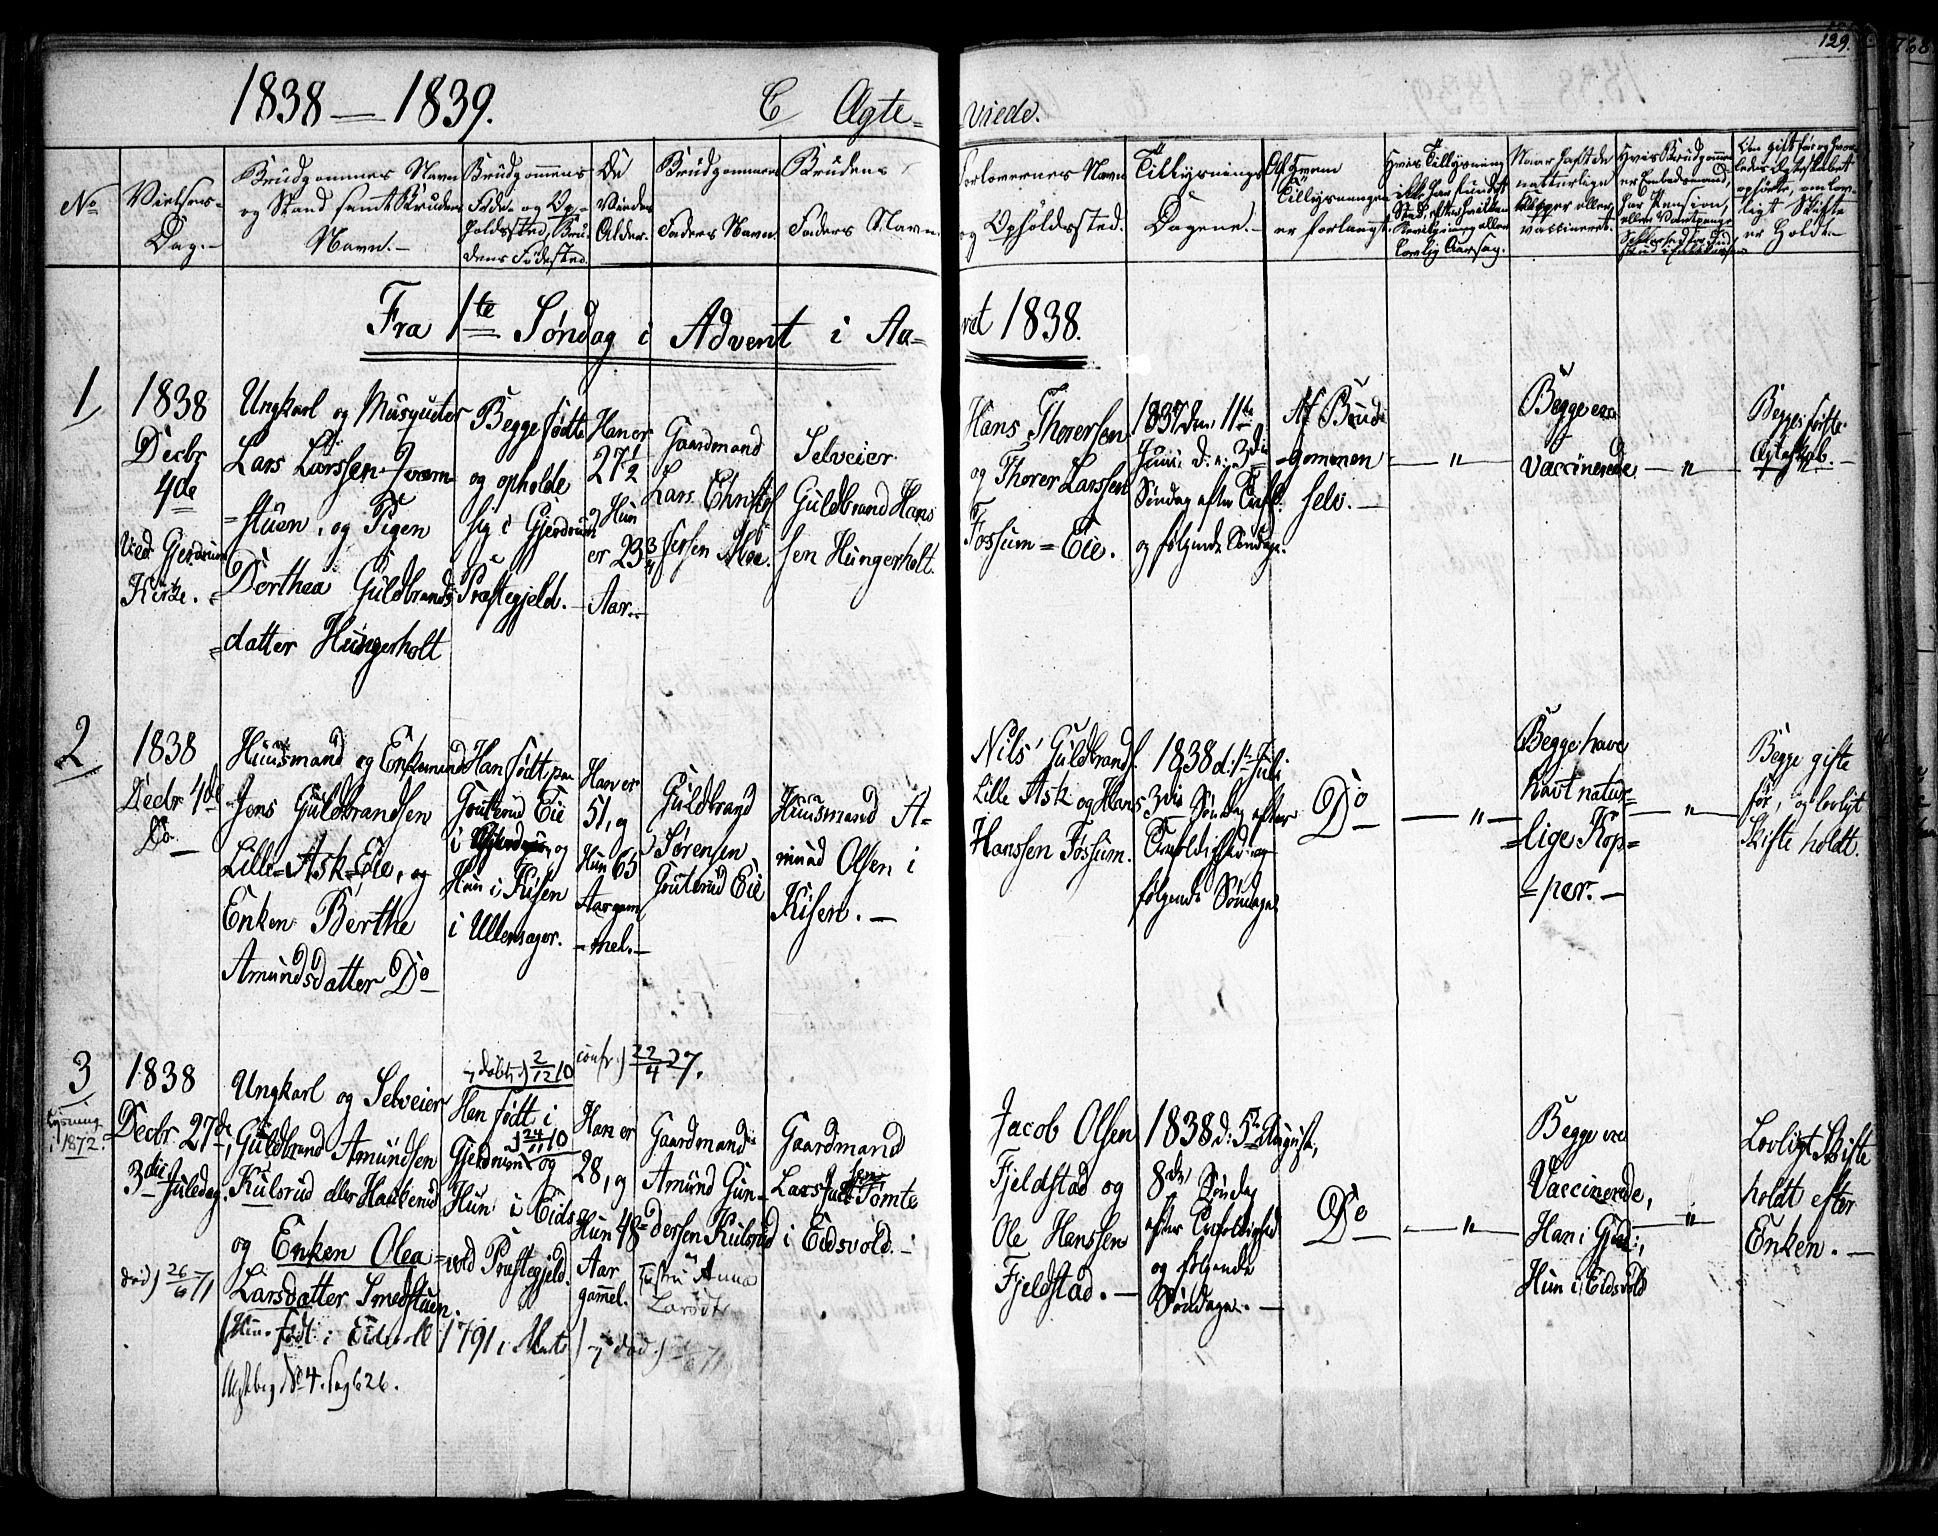 129.
1838 — 1839.
C Ægte-
-viede.
No
Vielses-
Dag.
Brudgommens Navn
og Stand samt Brudens
Navn.
Brudgommens
Føde- og Op-
holdssted, Bru-
dens Fødested.
De
Viedes
Alder.
Brudgommens
Faders Navn.
Brudens
Faders Navn.
Forlovernes Navn
og Opholdssted.
Tillysnings
Dagene.
Af hvem
Tillysningen
er forlangt.
Hvis Tillysning
ikke har fundet
Sted, efter hvilken
Bevilgning eller
lovlig Aarsag.
Naar havt de
naturlige
Kopper eller
vaccineret.
Hvis Brudgommen
er Embedsmand,
har Pension,
eller Vartpenge
Om gift før og hvor-
ledes Ægteskabet
ophørte, om lov-
ligt Skifte
er holdt.
Fra 1te Søndag i Advent i Aa-
ret 1838.
1
1838
Decbr
4de
Ved Gjerdrum
Kirke.
Ungkarl og Musqueter
Lars Larssen
-stuen, og Pigen
Dorthea Guldbrands
-datter Hungerholt
Begge fødte
og opholde
sig i Gjerdrum
Præstegjeld.
Han er
27½
Hun
er 23¾
Aar.
Gaardmand
Lars Christof
fersen Moe.
Selveier
Guldbrand Hans
sen Hungerholt.
Hans Thorersen
og Thorer Larssen
Fossum-Eie.
1837 den 11te
Juni, d. e. 3die
Søndag efter Trefk.
og følgende Søndage.
Af Brud-
-gommen
selv.
— " —
Begge ere
vaccinerede
— " —
Begges første
Ægteskab.
2
1838
Decbr 4de
Do
Huusmand og Enkemand
Jens Guldbrandsen
Lille-Ask-Eie, og
Enken Berthe
Amundsdatter Do
Han født paa
Grouterud Eie
i Gjerdrum, og
Hun i Kisen
i Ullensager.
Han er
51, og
Hun 65
Aar gam
-mel.
Guldbrand
Sørensen
Grouterud Eie
Huusmand A-
mund Olsen i
Kisen.
Nils Guldbrands.
Lille Ask og Hans
Hanssen Fossum.
1838 d. 1te Juli
3die Søndag efter
Trefoldighed og
følgende Søndage.
Do
— " —
Begge have
havt natur-
-lige Kop-
-per.
— " —
Begge gifte
før, og lovligt
Skifte holdt.
3
Lysning
i 1872.
1838
Decbr 27de,
3die Juledag.
død) 26/6 71
Ungkarl og Selveier
Guldbrand Amundsen
Kulsrud eller Haukerud
og Enken Olea
Larsdatter Smedstuen.
(Hun født i Eidsvold 1791 i Marts) død) 26/6 71
No 4. Pag 626.
døbt) 2/12 10
Han født i
) 24/11 10
Gjerdrum og
Hun i Eids
-vold Præstegjeld.
confr.) 22/4 27.
Han er
28, og
Hun 48
Aar
gammel.
Gaardmand
Amund Gun-
dersen Kulsrud
Hustru Anna
Larsdtr
Gaardmand
Lars Tomte
i Eidsvold.
Jacob Olsen
Fjeldstad og
Ole Hanssen
Fjeldstad.
1838 d. 5te August,
8de Søndag
efter Trefoldighed
og følgende
Søndage.
Do
— " —
Begge ere
Vaccinerede,
Han i Gjerd:,
Hun i Eidsvold
— " —
Lovligt Skifte
holdt efter
Enken.